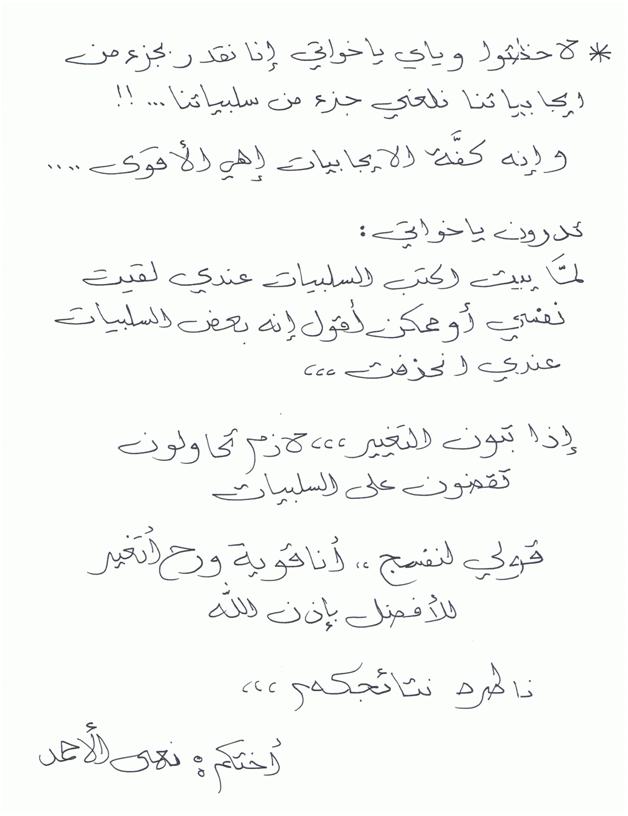 * لاحظوا وياي ياخواتي إنا نقدر بجزء من
ايجابياتنا نلغي جزء من سلبياتنا...!!
وإنه كفَّة الايجابيات إهي الأقوى ....
تدرون ياخواتي :
لمَّا يبيت اكتب السلبيات عندي لقيت
نفسي أو ممكن أقول إنه بعض السلبيات
عندي انحذفت ،،،
إذا تبون التغيير ،،، لازم تحاولون
تقضون على السلبيات
قولي لنفسج ،، أنا قوية ورح أتغير
للأفضل بإذن الله
ناطره نتائجكم ،،،
أختكم : نهى الأحمد